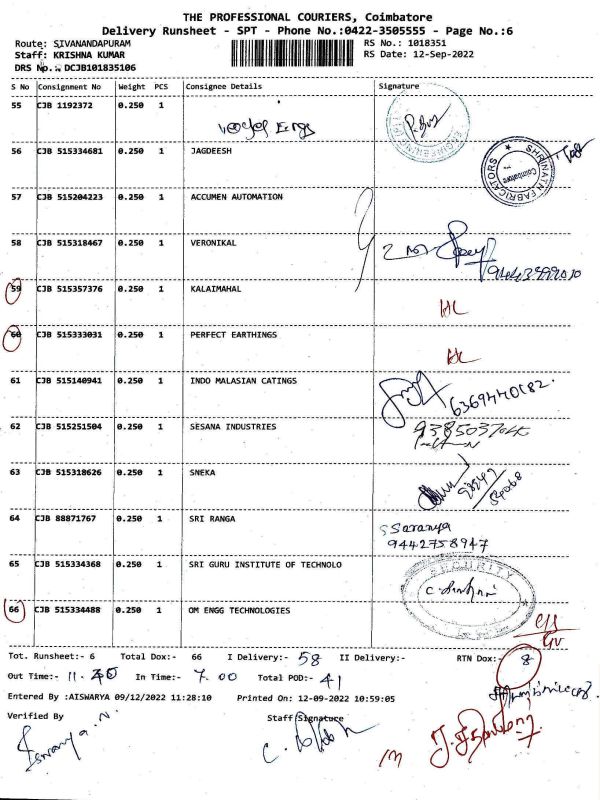 THE PROFESSIONAL COURIERS, Coimbatore
Delivery Runsheet - SPT - Phone No.:0422-3505555 - Page No.:6
Route: SIVANANDAPURAM
RS No.: 1018351
Staff: KRISHNA KUMAR
RS Date: 12-Sep-2022
DRS No.: DCJB1018835106
S No Consignment No Weight PCS Consignee Details Signature
55 CJB 1192372 0.250 1
56 CJB 515334681 0.250 1 JAGDEESH
SHRINATH FABRICATORS Coimbatore
57 CJB 515204223 0.250 1 ACCUMEN AUTOMATION
58 CJB 515318467 0.250 1 VERONIKAL
59 CJB 515357376 0.250 1 KALAIMAHAL
HL
60 CJB 515333031 0.250 1 PERFECT EARTHINGS
HL
61 CJB 515140941 0.250 1 INDO MALASIAN CATINGS
62 CJB 515251504 0.250 1 SESANA INDUSTRIES
63 CJB 515318626 0.250 1 SNEKA
64 CJB 88871767 0.250 1 SRI RANGA
Saranya
9442758947
65 CJB 515334368 0.250 1 SRI GURU INSTITUTE OF TECHNOLO
SECURITY
66 CJB 515334488 0.250 1 OM ENGG TECHNOLOGIES
Tot. Runsheet:- 6 Total Dox:- 66 I Delivery:- 58 II Delivery:- RTN Dox:- 8
Out Time:- 11.40 In Time:- 7.00 Total POD:- 41
Entered By :AISWARYA 09/12/2022 11:28:10 Printed On: 12-09-2022 10:59:05
Verified By Staff Signature
Iswarya.N.